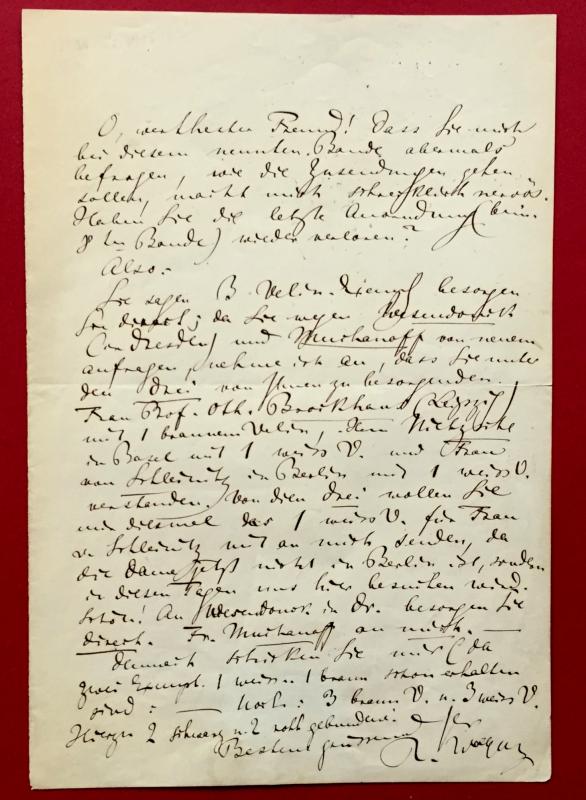 O, werthester Freund! Dass Sie mich
bei diesem neunten Bande abermals
befragen, wie die Zusendungen gehen
sollen, macht mich schrecklich nervös.
Haben Sie die letzte Anordnung (beim
8ten Bande) wieder verloren?
Also:
Sie sagen 3 Velin-Exempl. besorgen
Sie direct; da Sie wegen Wesendonck
(in Dresden) und Muchanoff von neuem
anfragen, nehme ich an, dass Sie unter
den drei von Ihnen zu besorgenden
Frau Prof. Ott. Brockhaus (Leipzig)
mit 1 braunem Velin, Herr Nietzsche
in Basel mit 1 weiss V. und Frau
von Schleinitz in Berlin mit 1 weiss V.
verstanden. Von den drei wollen Sie
nur diesmal das 1 weiss V. für Frau
v. Schleinitz mit an mich senden, da
die Dame jetzt nicht in Berlin ist, sondern
in diesen Tagen uns hier besuchen wird.
Schön! An Wesendonck in Dr. besorgen Sie
direct. Fr. Muchanoff an mich. —
Demnach schicken Sie mir (da
zwei Exempl. 1 weiss u. 1 braun schon erhalten
sind: — noch: 3 braun V. u. 3 weiss V.
Hierzu 2 schwarz u. 2 roth gebundene.
Bestens grüssend der
R. Wagner